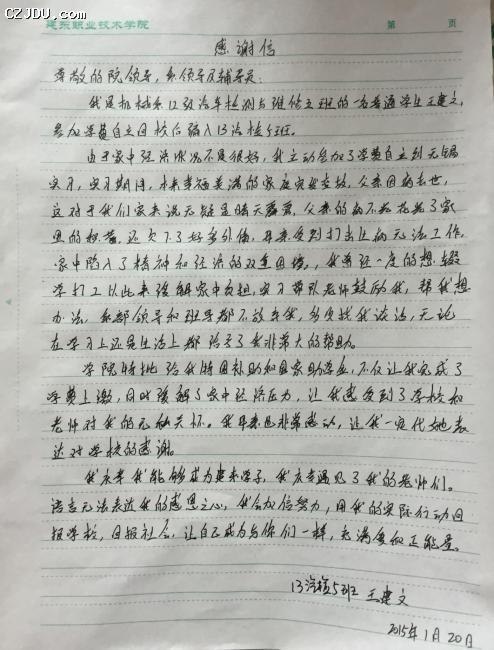 CZJDU.com
建东职业技术学院 第 页
感谢信
尊敬的院领导，系领导及辅导员：
我是机械系12级汽车检测与维修五班的一名普通学生王建文，
参加学费自立回校后编入13汽检5班。
由于家中经济状况不是很好，我主动参加了学费自立到无锡
实习，实习期间，本来幸福美满的家庭突生变故，父亲因病去世，
这对于我们家来说无疑是晴天霹雳，父亲的病不光花光了家
里的积蓄，还欠下了好多外债，母亲受到打击让病无法工作。
家中陷入了精神和经济的双重困境，我曾经一度的想辍
学打工以此来缓解家中负担，实习带队老师鼓励我，帮我想
办法，系部领导和班导都不放弃我，多次找我谈话，无论
在学习上还是生活上都给予了我非常大的帮助。
学院特批给我特困补助和国家助学金，不仅让我完成了
学费上缴，同时缓解了家中经济压力，让我感受到了学校和
老师对我的无私关怀。我母亲也非常感动，让我一定代她表
达对学校的感谢。
我庆幸我能够成为建东学子，我庆幸遇见了我的老师们。
语言无法表达我的感恩之心，我会加倍努力，用我的实际行动回
报学校，回报社会，让自己成为与你们一样，充满爱和正能量。
13汽检5班 王建文
2015年1月20日